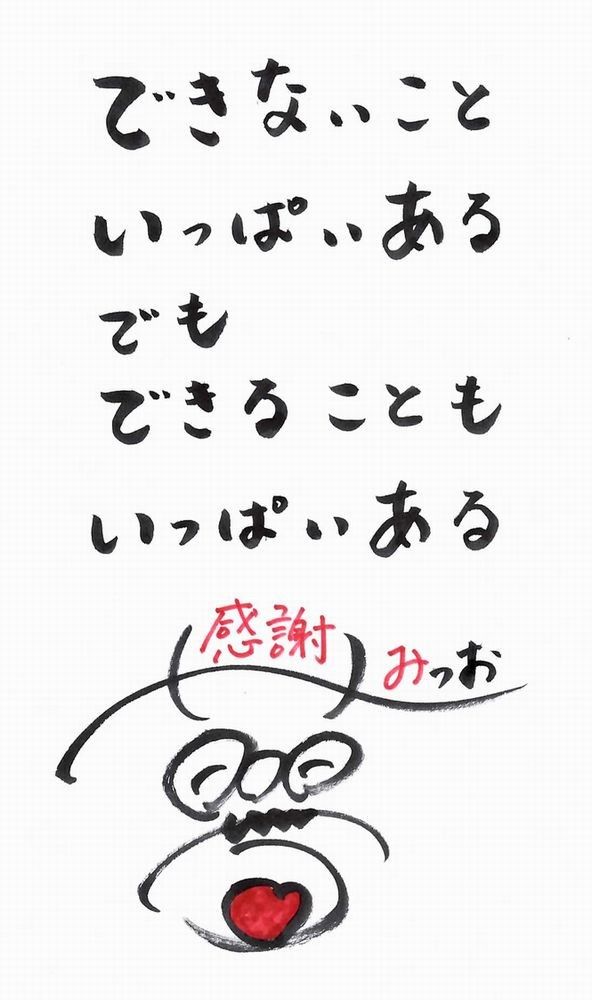 できないこと
いっぱいある
でも
できることも
いっぱいある
感謝
みつお